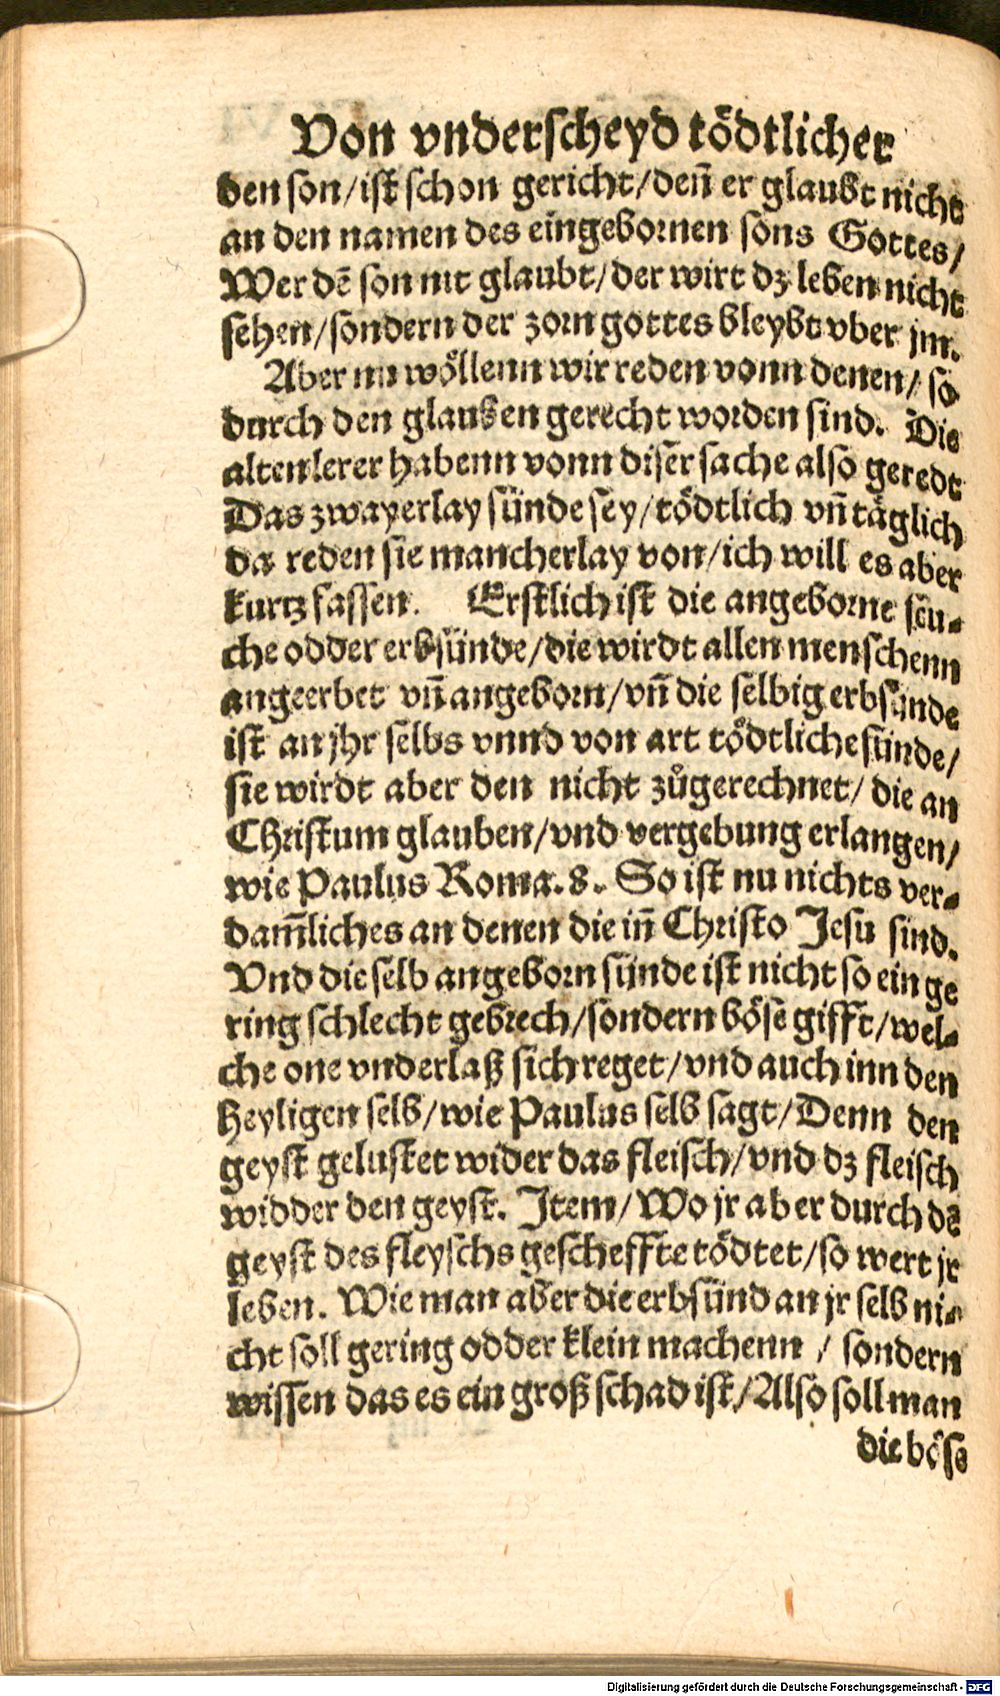 Von vnderscheyd tödtlicher
den son/ist schon gericht/deñ er glaubt nicht
an den namen des eingebornen sons Gottes/
Wer dē son nit glaubt/der wirt dz leben nicht
sehen/sondern der zorn gottes bleybt vber jm.
Aber nu wöllenn wir reden vonn denen/ so
durch den glauben gerecht worden sind. Die
alten lerer habenn vonn diser sache also geredt
Das zwayerlay sünde sey/tödtlich vñ täglich
da reden sie mancherlay von/ich will es aber
kurtz fassen. Erstlich ist die angeborne seu-
che odder erbsünde/die wirdt allen menschenn
angeerbet vñ angeborn/vñ die selbig erbsünde
ist an jhr selbs vnnd von art tödtliche sünde/
sie wirdt aber den nicht zůgerechnet/ die an
Christum glauben/vnd vergebung erlangen/
wie Paulus Roma. 8. So ist nu nichts ver-
dam̄liches an denen die in̄ Christo Jesu sind.
Vnd die selb angeborn sünde ist nicht so ein ge
ring schlecht gebrech/sondern böse gifft/wel-
che one vnderlaß sich reget/vnd auch inn den
Heyligen selb/wie Paulus selb sagt/Denn den
geyst gelustet wider das fleisch/vnd dz fleisch
widder den geyst. Item/Wo jr aber durch dē
geyst des fleyschs gescheffte tödtet/so wert jr
leben. Wie man aber die erbsünd an jr selb ni-
cht soll gering odder klein machenn / sondern
wissen das es ein groß schad ist/Also soll man
die böse
Digitalisierung gefördert durch die Deutsche Forschungsgemeinschaft - DFG